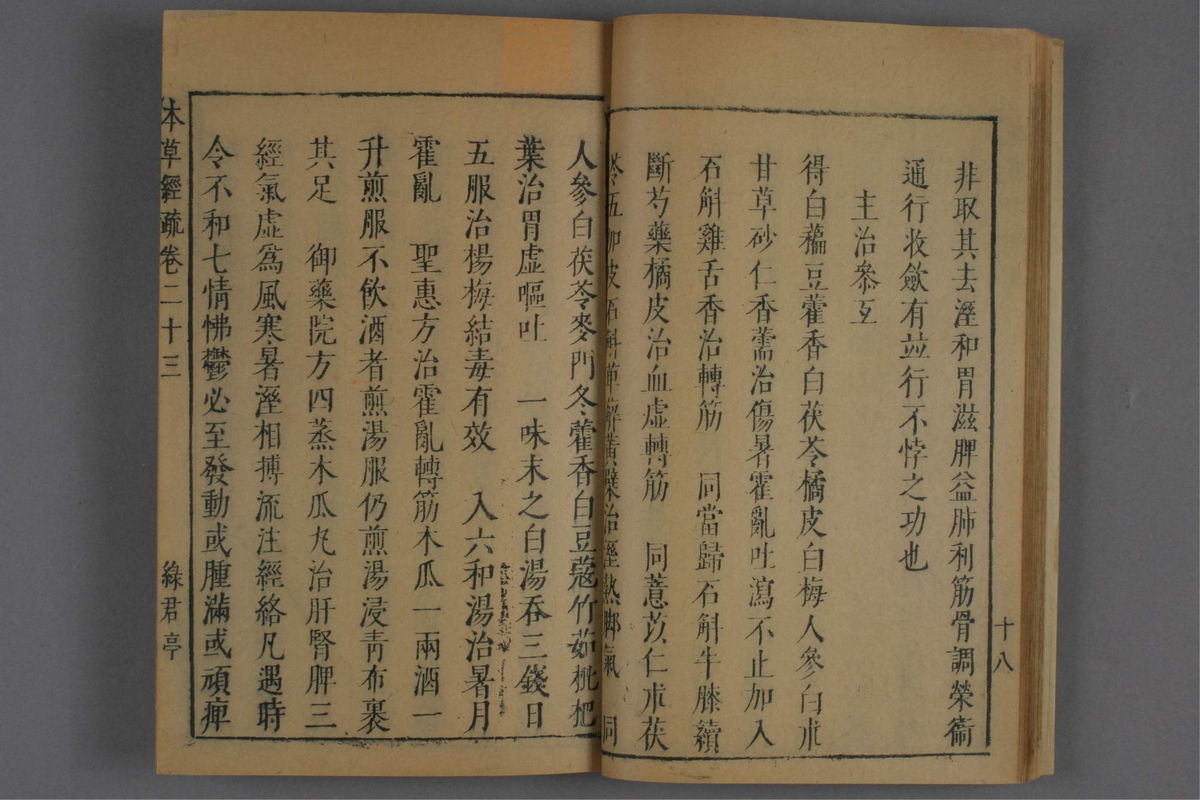 非取其去溼和胃滋脾益肺利筋骨調榮衞
通行收斂有並行不悖之功也
主治參互
得白藊豆藿香白茯苓橘皮白梅人參白朮
甘草砂仁香薷治傷暑霍亂吐瀉不止加入
石斛雞舌香治轉筋 同當歸石斛牛膝續
斷芍藥橘皮治血虛轉筋 同薏苡仁朮茯
苓五加皮石斛萆薢黃蘗治溼熱脚氣 同
人參白茯苓麥門冬藿香白豆蔻竹茹枇杷
葉治胃虛嘔吐 一味末之白湯吞三錢日
五服治楊梅結毒有效 入六和湯治暑月
霍亂 聖惠方治霍亂轉筋木瓜一兩酒一
升煎服不飲酒者煎湯服仍煎湯浸青布裹
其足 御藥院方四蒸木瓜丸治肝腎脾三
經氣虛爲風寒暑溼相搏流注經絡凡遇時
令不和七情怫鬱必至發動或腫滿或頑痺
十八
本草經疏卷二十三
綠君亭